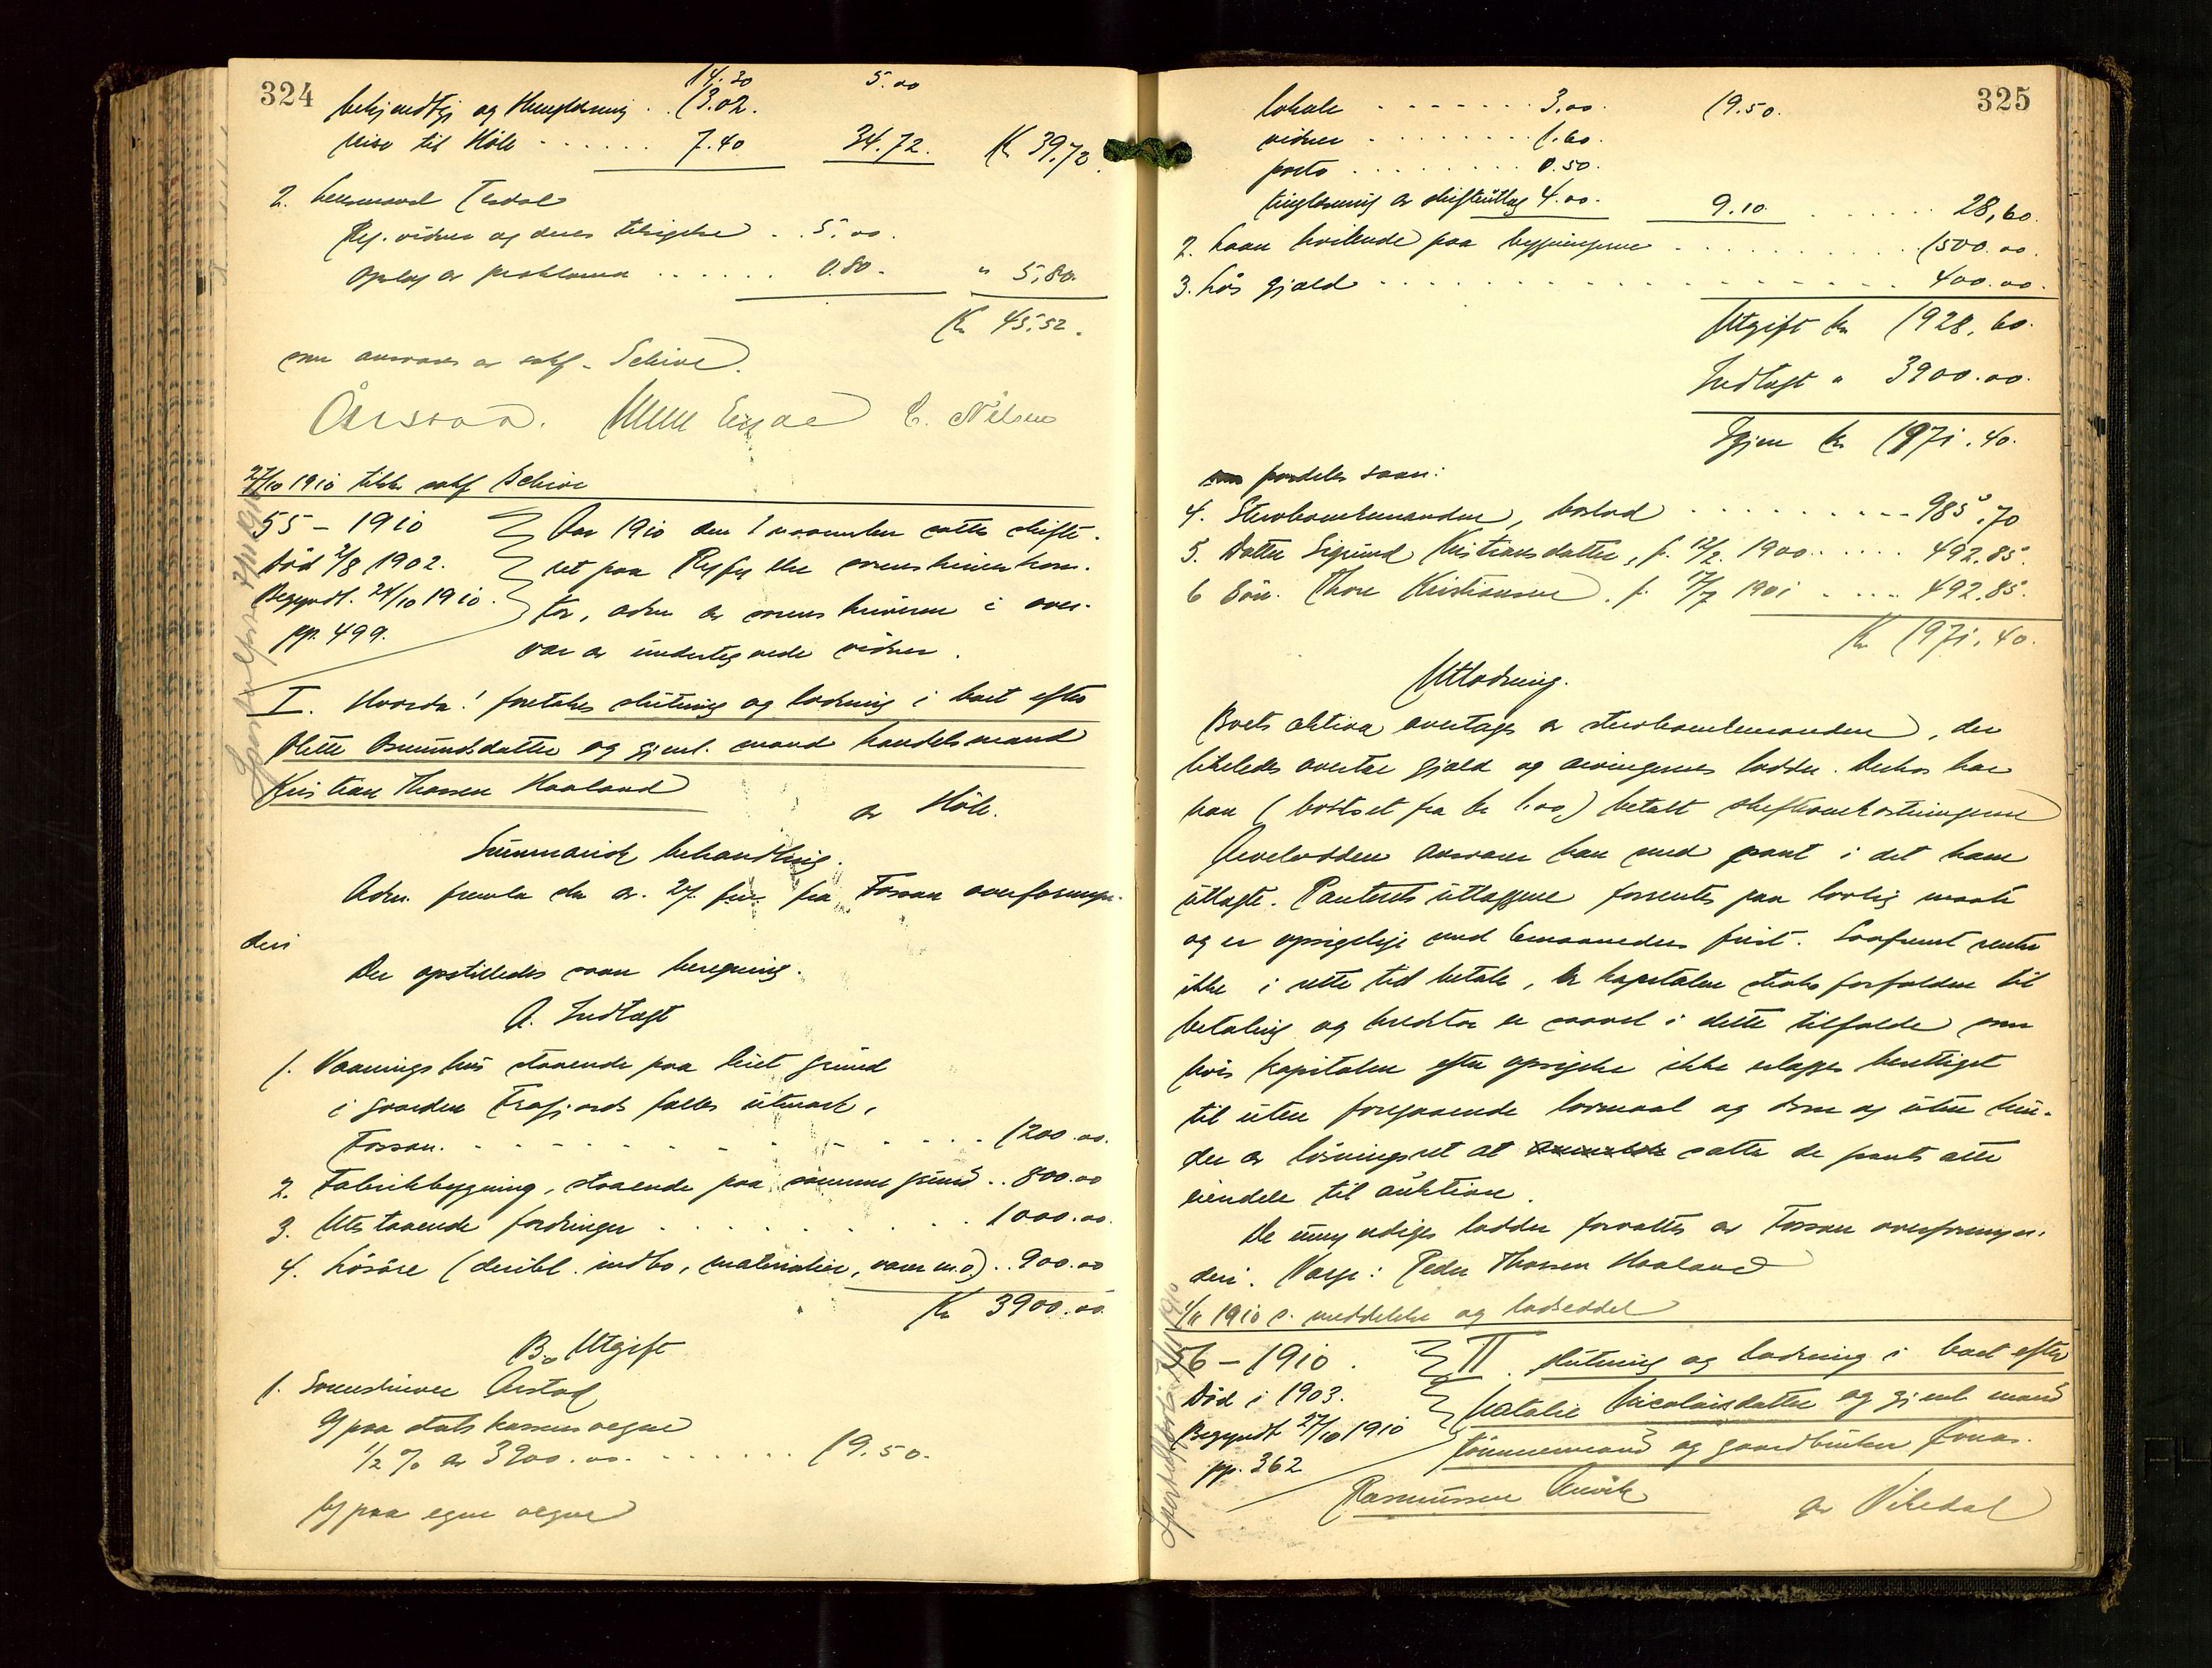 324
14.20 5.00
bekjendtgj og thinglæsning . . 13.02.
reise til Höle . . . . . . 7.40 34.72. Kr 39,72.
2. lensmand Tesdal
Reg. vidner og deres tilsigelse . . 5.00.
Oplag av proklama . . . . . . 0.80. " 5,80.
Kr 45.52.
som ansvares av sakf. Schive.
C. Nilsen
27/10 1910 tilskr sakf Schive
55 – 1910
Död 2/8 1902.
Begyndt. 24/10 1910.
pp. 499.
Aar 1910 den 1 november sattes skifte-
ret paa Ryfylke sorenskriverkon-
tor, adm. av sorenskriveren i over-
vær av undertegnede vidner.
I. Hvorda! foretokes slutning og lodning i boet efter
Olette Osmundsdatter og gjenl. mand handelsmand
Kristian Thorsen Haaland
av Höle.
Summarisk behandling.
Adm. fremla skr av. 27. fm. fra Fossan overformyn-
deri
Der opstilledes saan beregning.
A. Indtægt
1. Vaaningshus staaende paa leiet grund
i gaarden Frafjords fælles utmark,
Fossan. . . . . . . . . . . 1200.00.
2. Fabrikbygning, staaende paa samme grund . . 800.00
3. Utestaaende fordringer . . . . . . . . . 1000.00.
4. Lösöre (deribl. indbo, materialier, varer m.v.) . . 900.00
Kr 3900.00.
B. Utgift
1. Sorenskriver Arstad
a) paa statskassens vegne
1/2 % av 3900.00. . . . . . . 19.50.
b) paa egne vegne
325
lokale . . . . . . . 3.00. 19.50.
vidner . . . . . . . 1.60.
porto . . . . . . . 0.50.
tinglæsning av skifteutlæg 4.00. 9.10. . . . . . . 28,60.
2. Laan hvilende paa bygningerne . . . . . . . . . 1500.00.
3. Lös gjæld . . . . . . . . . . . . . . 400.00.
Utgift kr 1928,60.
Indtægt " 3900.00.
Igjen kr 1971.40.
fordeles saan:
4. Stervboenkemanden, boslod . . . . . . . . . 985.70
5. Datter Sigrund Kristiansdatter, f. 12/2 1900 . . . . . . 492.85.
6 Sön. Thore Kristiansen, f. 17/7 1901 . . . . 492.85.
Kr 1971.40.
Utlodning.
Boets aktiva overtages av stervboenkemanden, der
likeledes overtar gjæld og arvingernes lodder. Derhos har
han (bortset fra kr 1.00) betalt skifteomkostningerne
Arvelodden ansvarer han med pant i det ham
utlagte. Panteretsutlæggene forrentes paa lovlig maate
og er opsigelige med 6 maaneders frist. Saafremt renter
ikke i rette tid betales, er kapitalen straks forfalden til
betaling og kreditor er saavel i dette tilfælde som
hvis kapitalen efter opsigelse ikke erlægges berettiget
til uten foregaaende lovmaal og dom og uten hin-
der av lösningsret at sætte de pantsatte
eiendele til auktion.
De umyndiges lodder forvaltes av Fossan overformyn-
deri. Værge: Peder Thorsen Haaland
1/11 1910 s. meddelelse og lodseddel
56 – 1910.
Död i 1903.
Begyndt 27/10 1910
pp. 362
II. slutning og lodning i boet efter
Natalie Nicolaisdatter og gjenl mand
tömmermand og gaardbruker Jonas
Rasmussen
av Vikedal